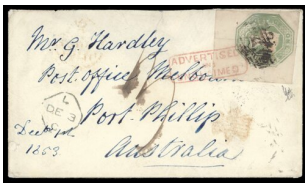 Mr. G. Hardley
Post office Melbou
Port Phillip
Australia
ADVERTISED
L
DE 3
Decr 1st
1853